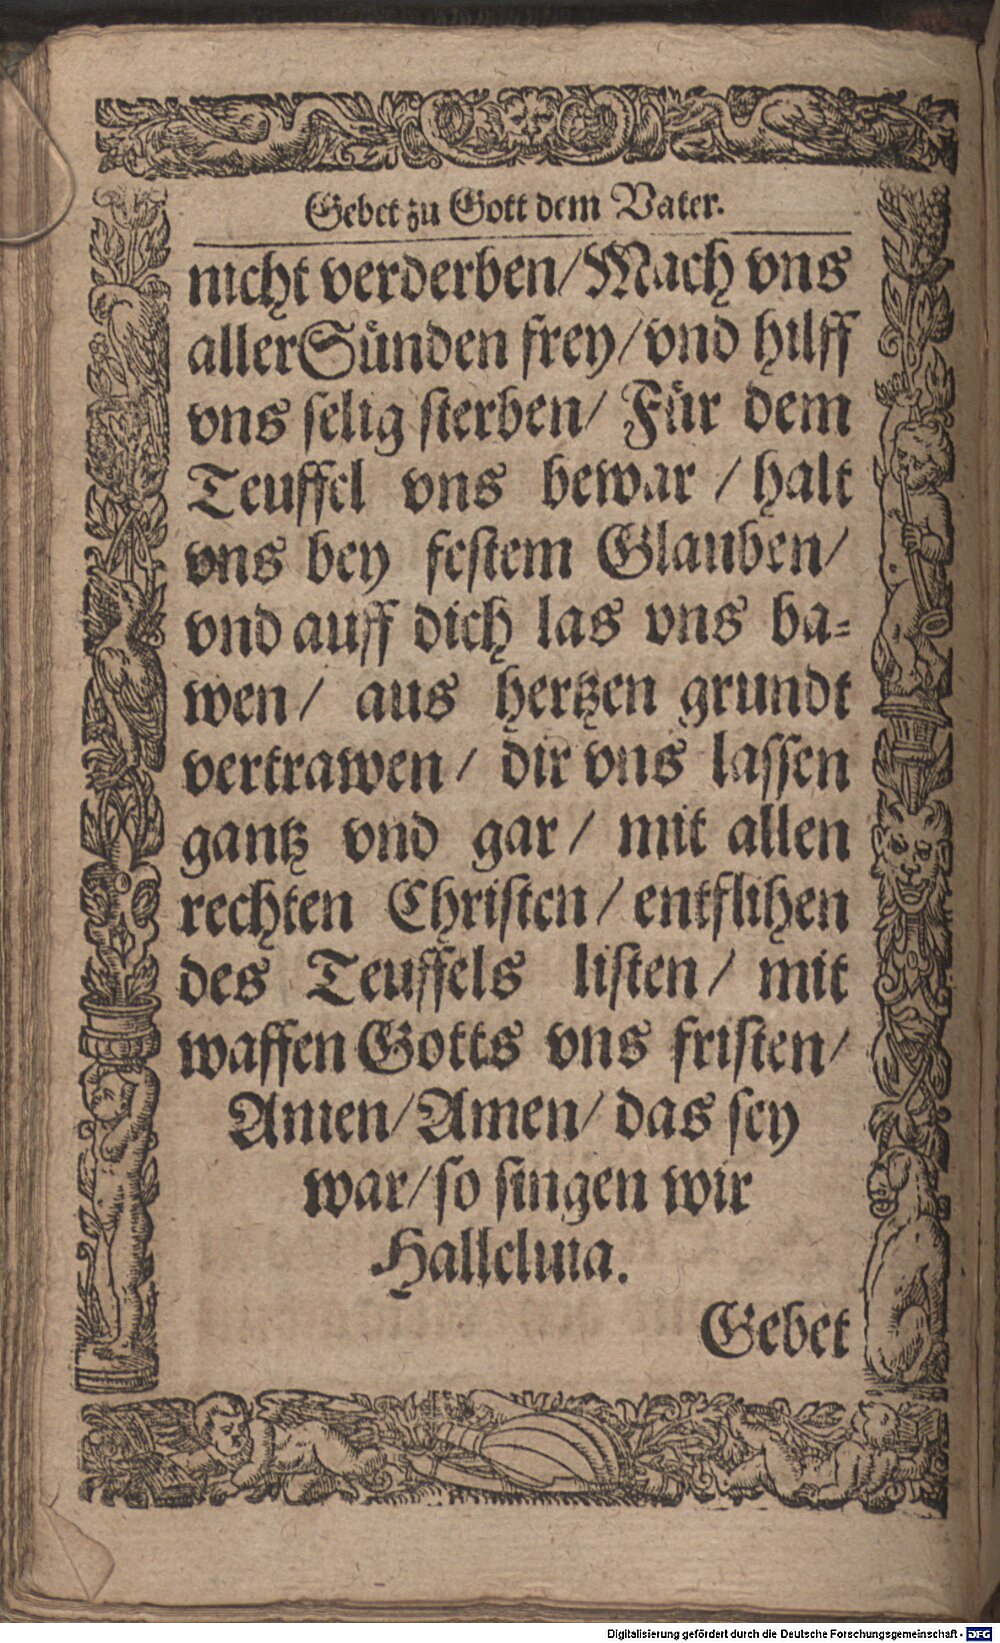 Gebet zu Gott dem Vater.
nicht verderben/Mach vns
aller Sünden frey/vnd hilff
vns selig sterben/ Für dem
Teuffel vns bewar / halt
vns bey festem Glauben/
vnd auff dich las vns ba-
wen/ aus hertzen grundt
vertrawen/ dir vns lassen
gantz vnd gar/ mit allen
rechten Christen/entflihen
des Teuffels listen/ mit
waffen Gotts vns fristen/
Amen/Amen/das sey
war/so singen wir
Halleluia.
Gebet
Digitalisierung gefördert durch die Deutsche Forschungsgemeinschaft - DFG